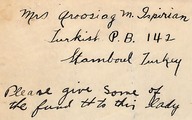 Mrs Aroosiag M. Ispirian
Turkish P.B. 142
Stamboul Turkey
Please give some of
the fund # to this lady